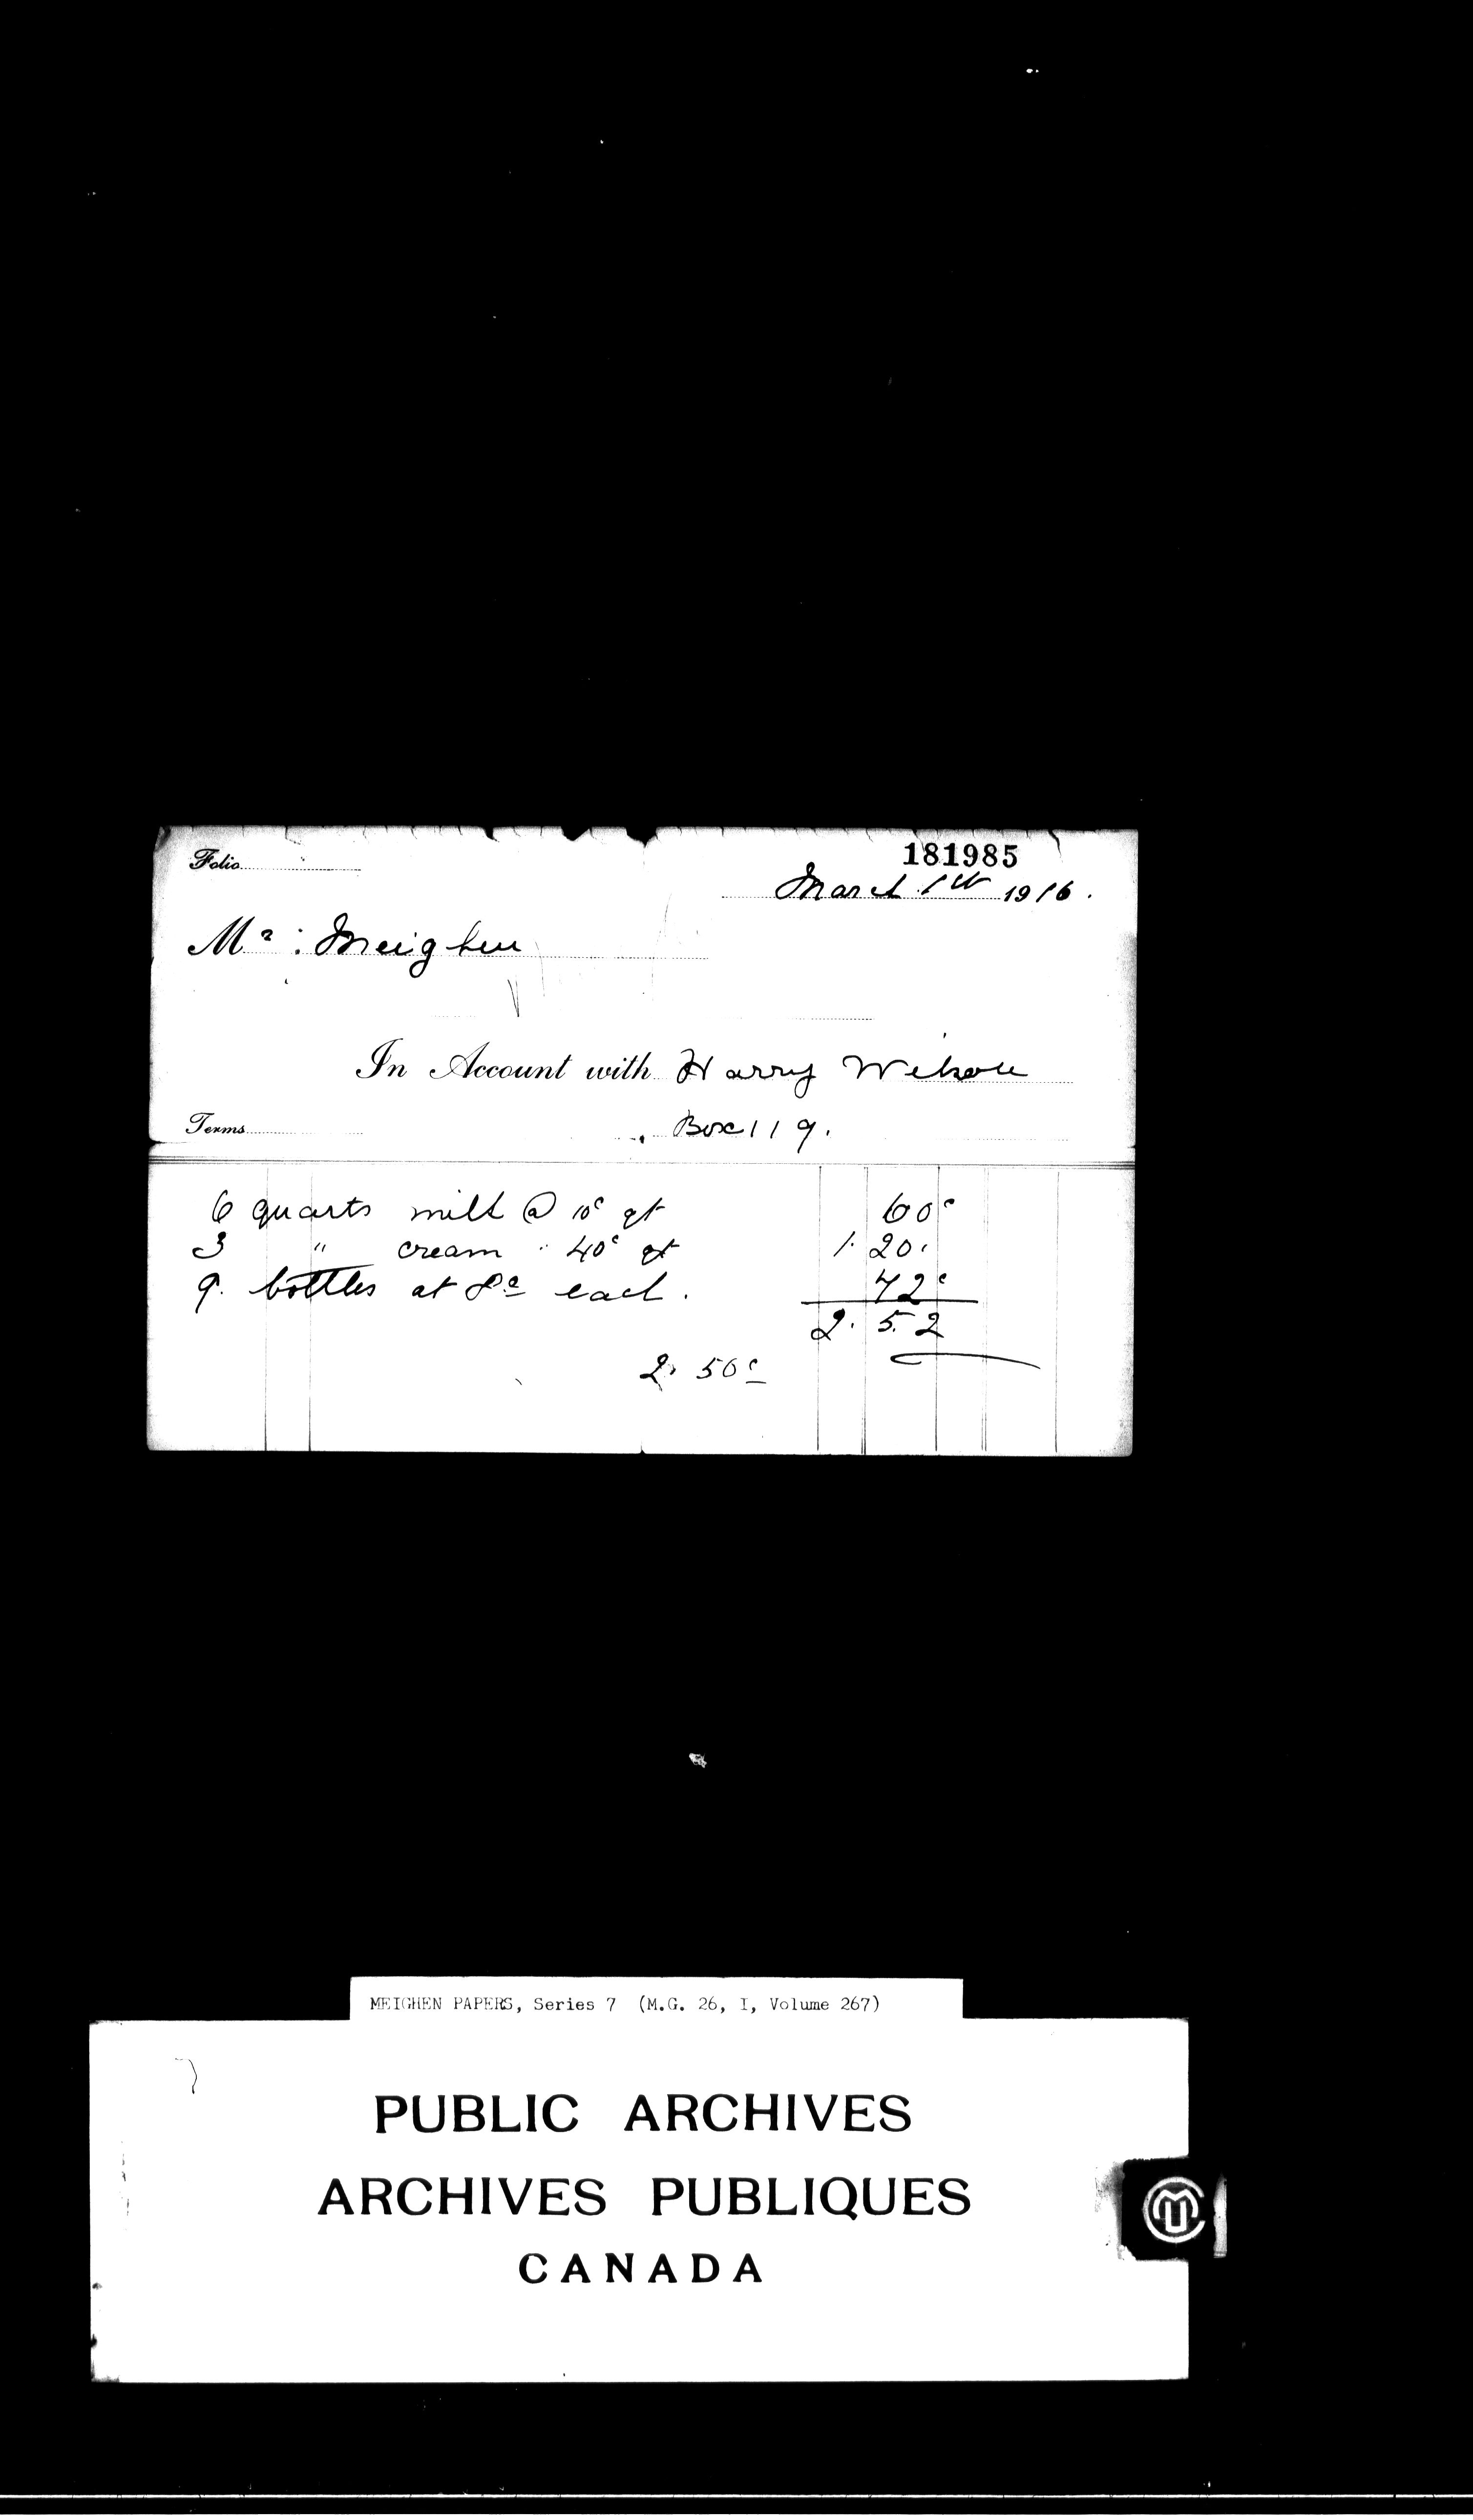 Folio
181985
March 1st 1916.
Mr: Meighen
In Account with Harry Wilson
Terms
Box 119.
6 quarts milk @ 10c qt 60c
3 " cream " 40c qt 1.20.
9. bottles at 8c each. 72c
2.52
2.50c
MEIGHEN PAPERS, Series 7 (M.G. 26, I, Volume 267)
PUBLIC ARCHIVES
ARCHIVES PUBLIQUES
CANADA